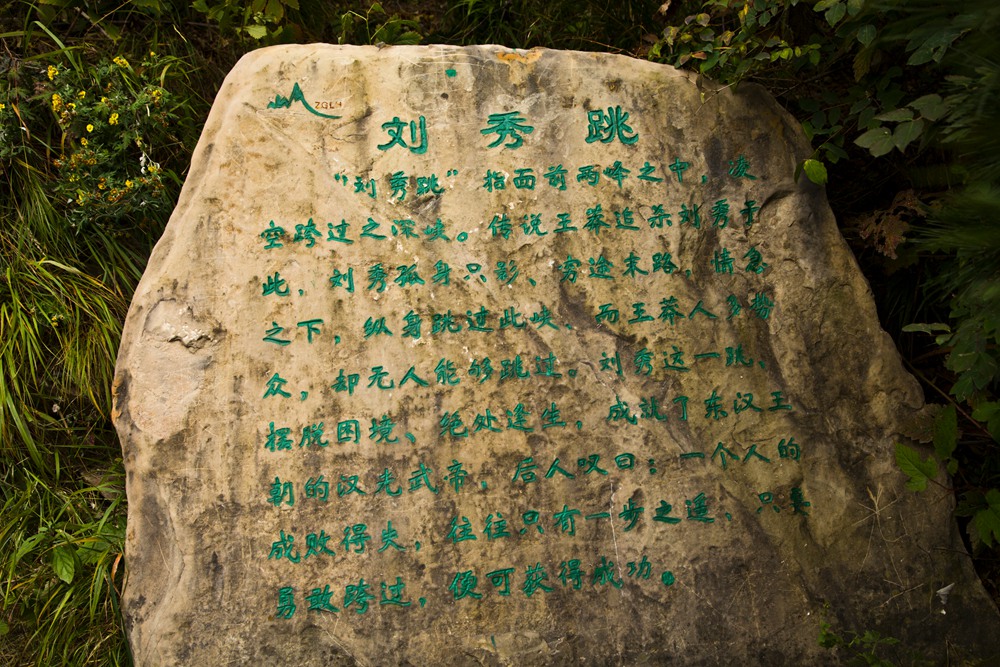 ZGLH
刘秀跳
“刘秀跳”指面前两峰之中，凌
空跨过之深峡。传说王莽追杀刘秀于
此，刘秀孤身只影、穷途末路，情急
之下，纵身跳过此峡，而王莽人多势
众，却无人能够跳过。刘秀这一跳，
摆脱困境、绝处逢生，成就了东汉王
朝的汉光武帝，后人叹曰：一个人的
成败得失，往往只有一步之遥，只要
勇敢跨过，便可获得成功。